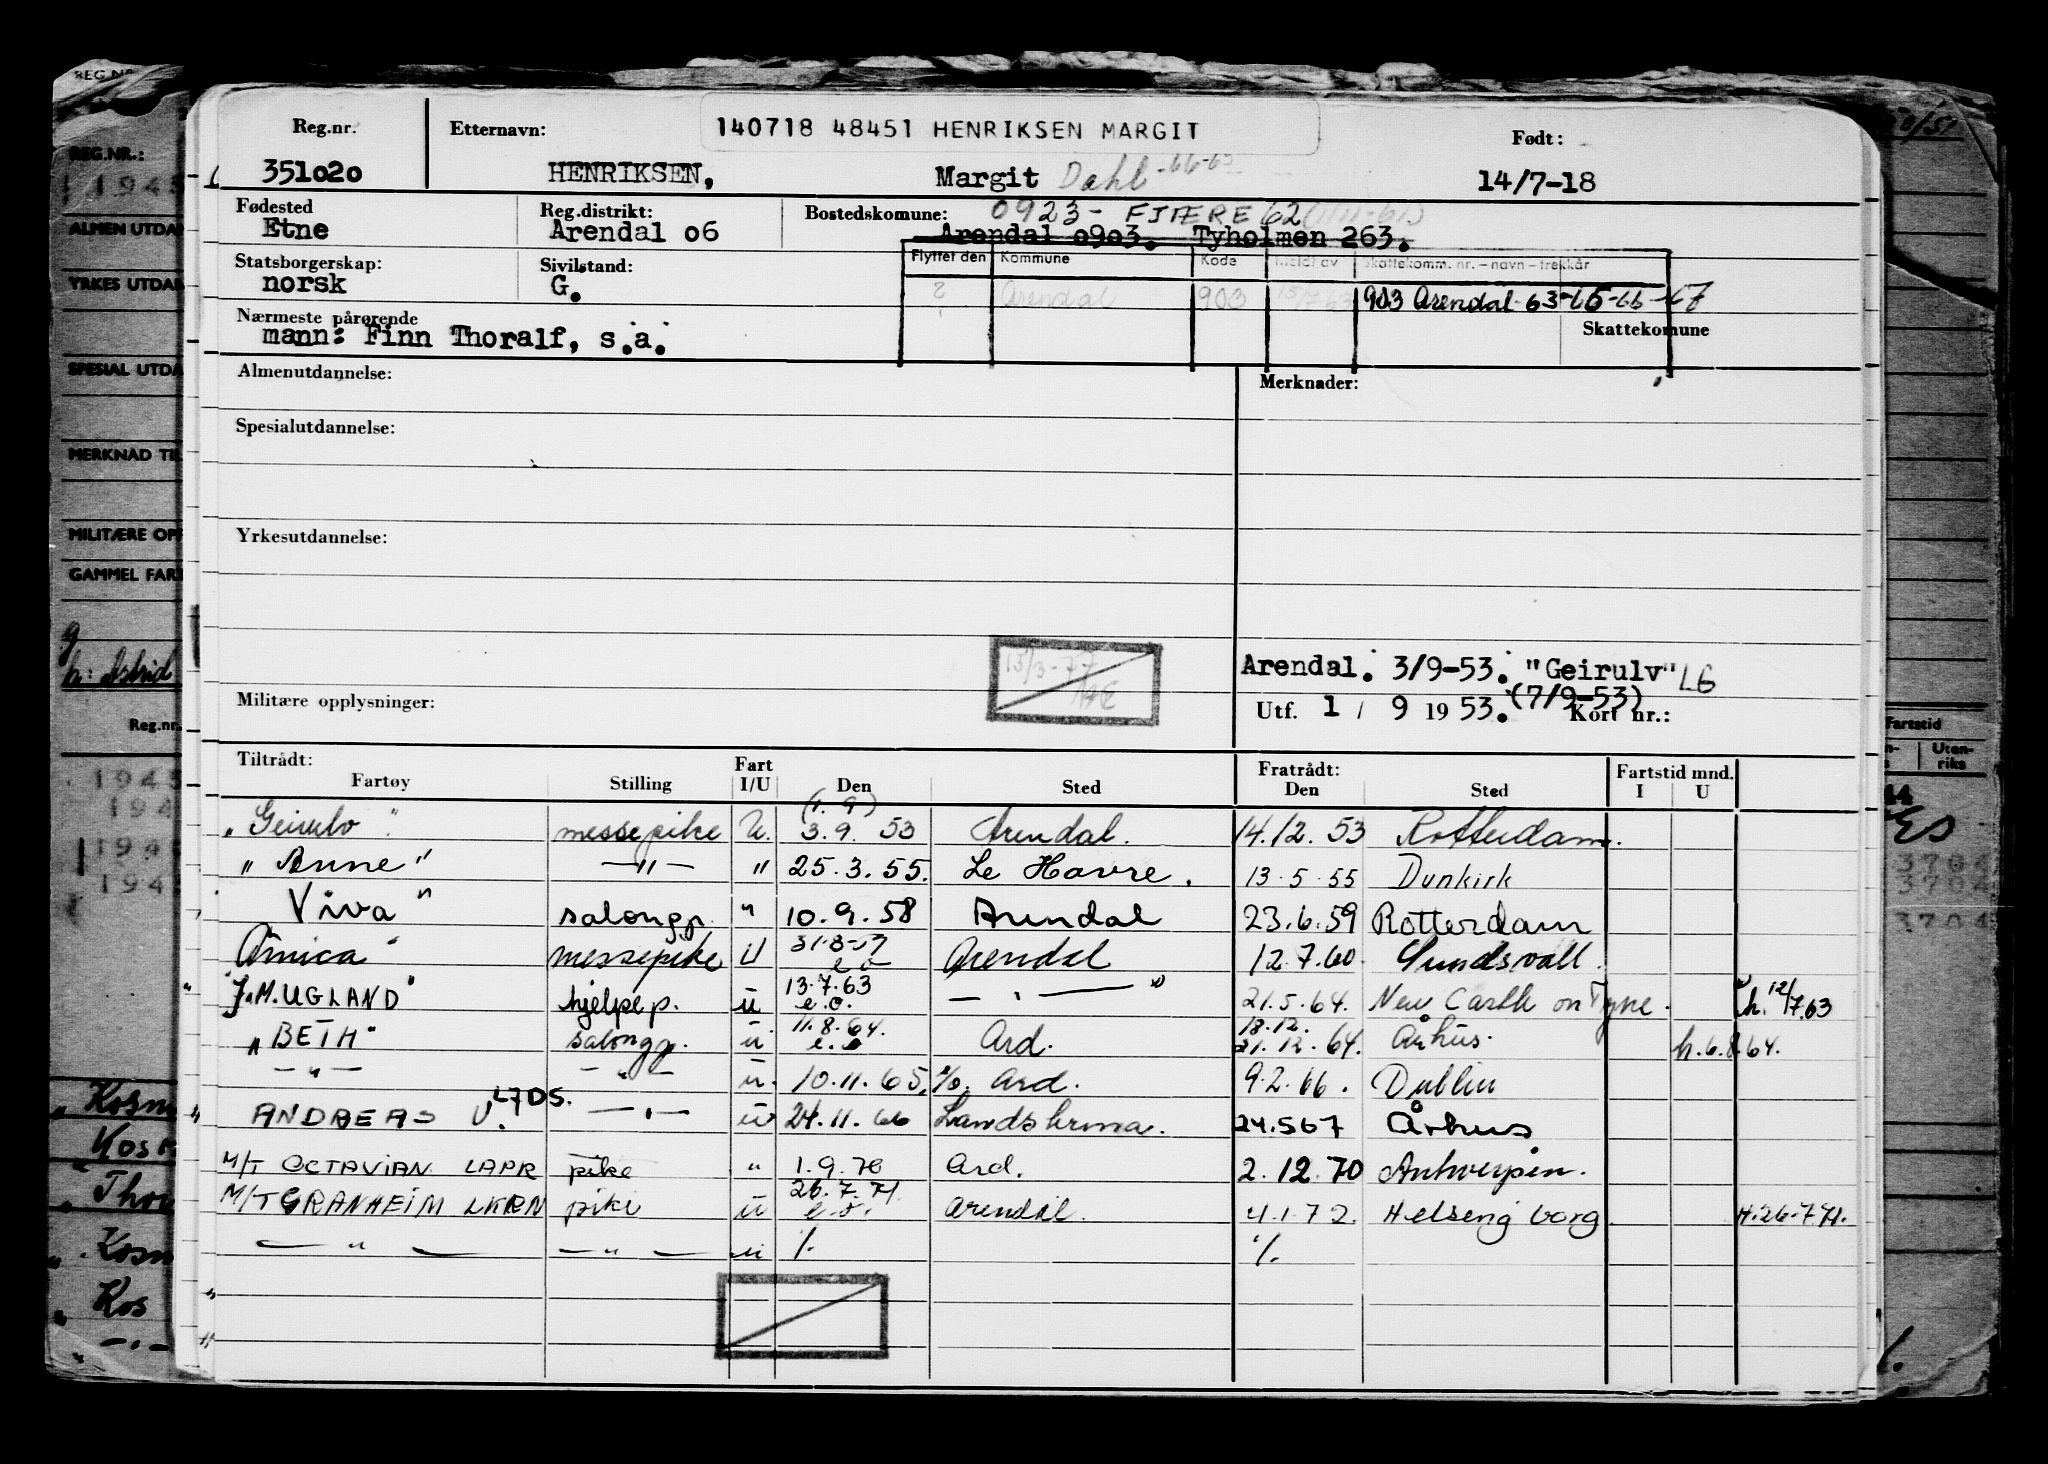 140718 48451 HENRIKSEN MARGIT
Reg.nr. Etternavn: Født:
351020 HENRIKSEN, Margit Dahl -66-65 14/7-18
Fødested Reg.distrikt: Bostedskomune: 0923 - FJÆRE 62
Etne Arendal 06 Arendal 0903. Tyholmen 263.
Statsborgerskap: Sivilstand: Flyttet den Kommune Kode Meldt av Skattekomm. nr. – navn – trekkår
norsk G. 2 Arendal 903 15/7-63 903 Arendal-63-65-66-67
Nærmeste pårørende Skattekomune
mann: Finn Thoralf, s.a.
Almenutdannelse: Merknader:
Spesialutdannelse:
Yrkesutdannelse:
15/3-77
Arendal. 3/9-53. "Geirulv" LG
(7/9-53)
Militære opplysninger: Utf. 1 / 9 1953. Kort nr.:
Tiltrådt: Fart Fratrådt: Fartstid mnd.
Fartøy Stilling I/U Den Sted Den Sted I U
(1. 9)
"Geirulv" messepike U. 3.9. 53 Arendal. 14.12. 53 Rotterdam.
"Anne" —"— " 25.3.55. Le Havre. 13.5.55 Dunkirk
Viva" salongp. " 10.9.58 Arendal 23.6.59 Rotterdam
Amica" messepike U e.o. Arendal 12.7.60. Sundsvall.
"J.M. UGLAND" hjelpep. u 13.7.63 e.o. —"— 21.5.64. New Castle on Tyne. h. 12/7.63
"BETH" salongp. u 11.8.64. e.o. Ard. 18.12. 31.12.64. Århus. h.6.8.64.
—"— —"— u. 10.11.65. %. Ard. 9.2.66. Dublin
ANDREAS U. LJDS. —"— u 24.11.66 Landskrona. 24.567 Århus
M/T OCTAVIAN LAPR pike " 1.9.70 Ard. 2.12.70 Antwerpen.
M/T GRANHEIM LKRN pike u 26.7.71. e.o. Arendal. 4.1.72. Helsingborg H.26.7.71.
—"— —"— u %. %.